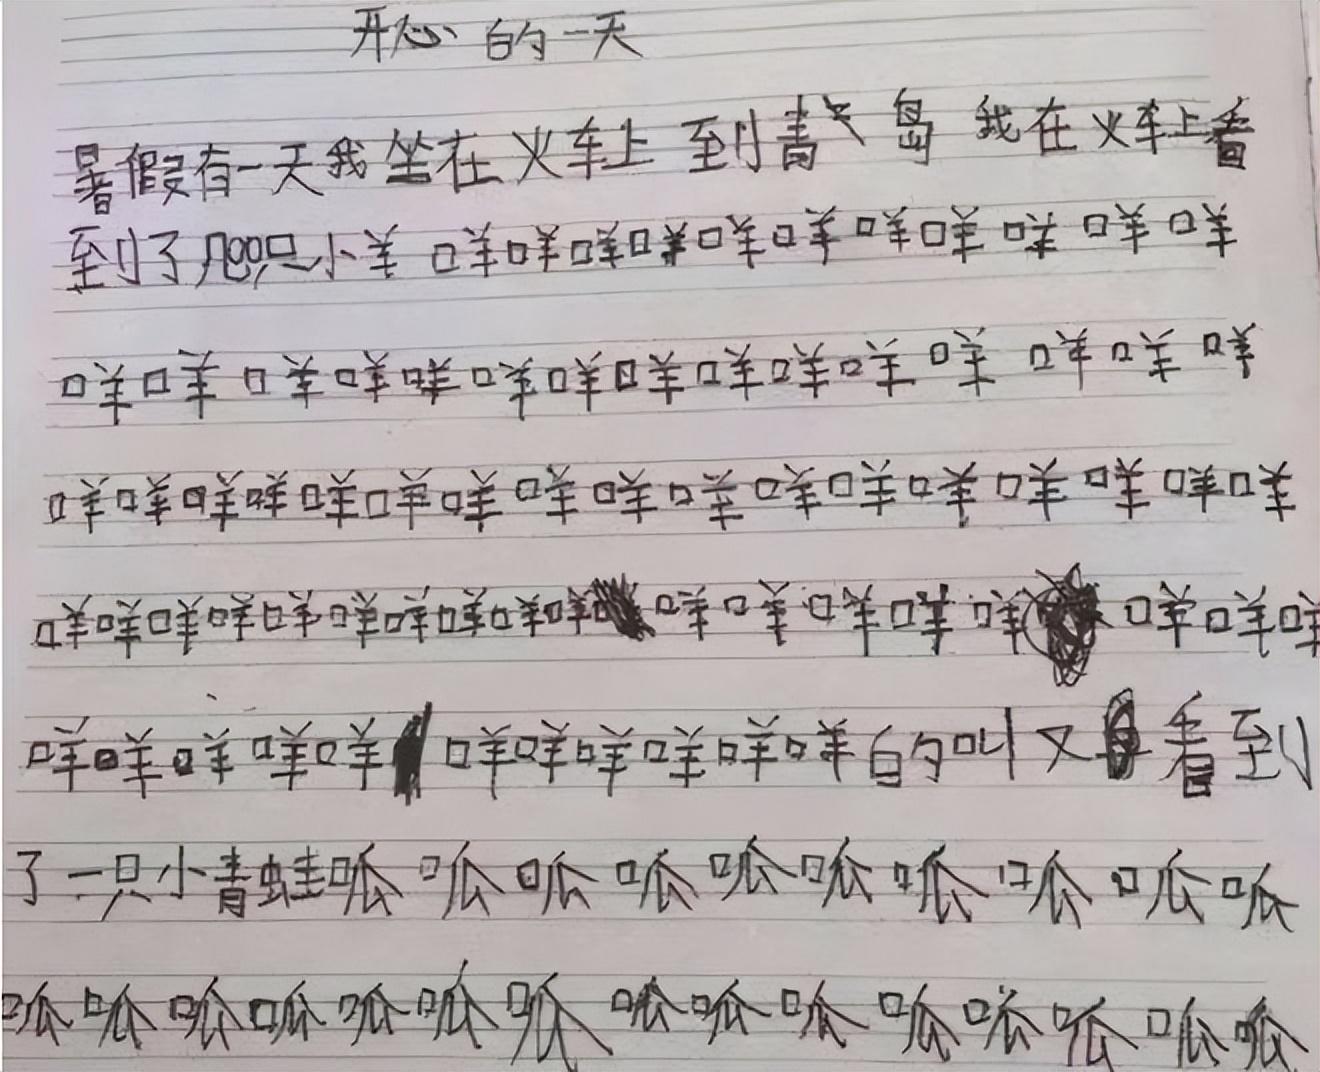 开心的一天
暑假有一天我坐在火车上到青岛我在火车上看
到了几只小羊咩咩咩咩咩咩咩咩咩咩咩
咩咩咩咩咩咩咩咩咩咩咩咩咩咩咩
咩咩咩咩咩咩咩咩咩咩咩咩咩咩咩咩咩
咩咩咩咩咩咩咩咩咩咩咩咩咩咩咩咩咩咩
咩咩咩咩咩咩咩咩咩咩咩的叫又看到
了一只小青蛙呱呱呱呱呱呱呱呱呱呱
呱呱呱呱呱呱呱呱呱呱呱呱呱呱呱